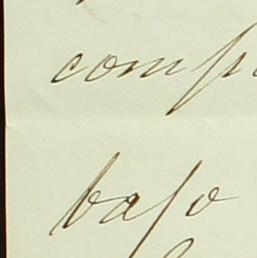 comp
baso